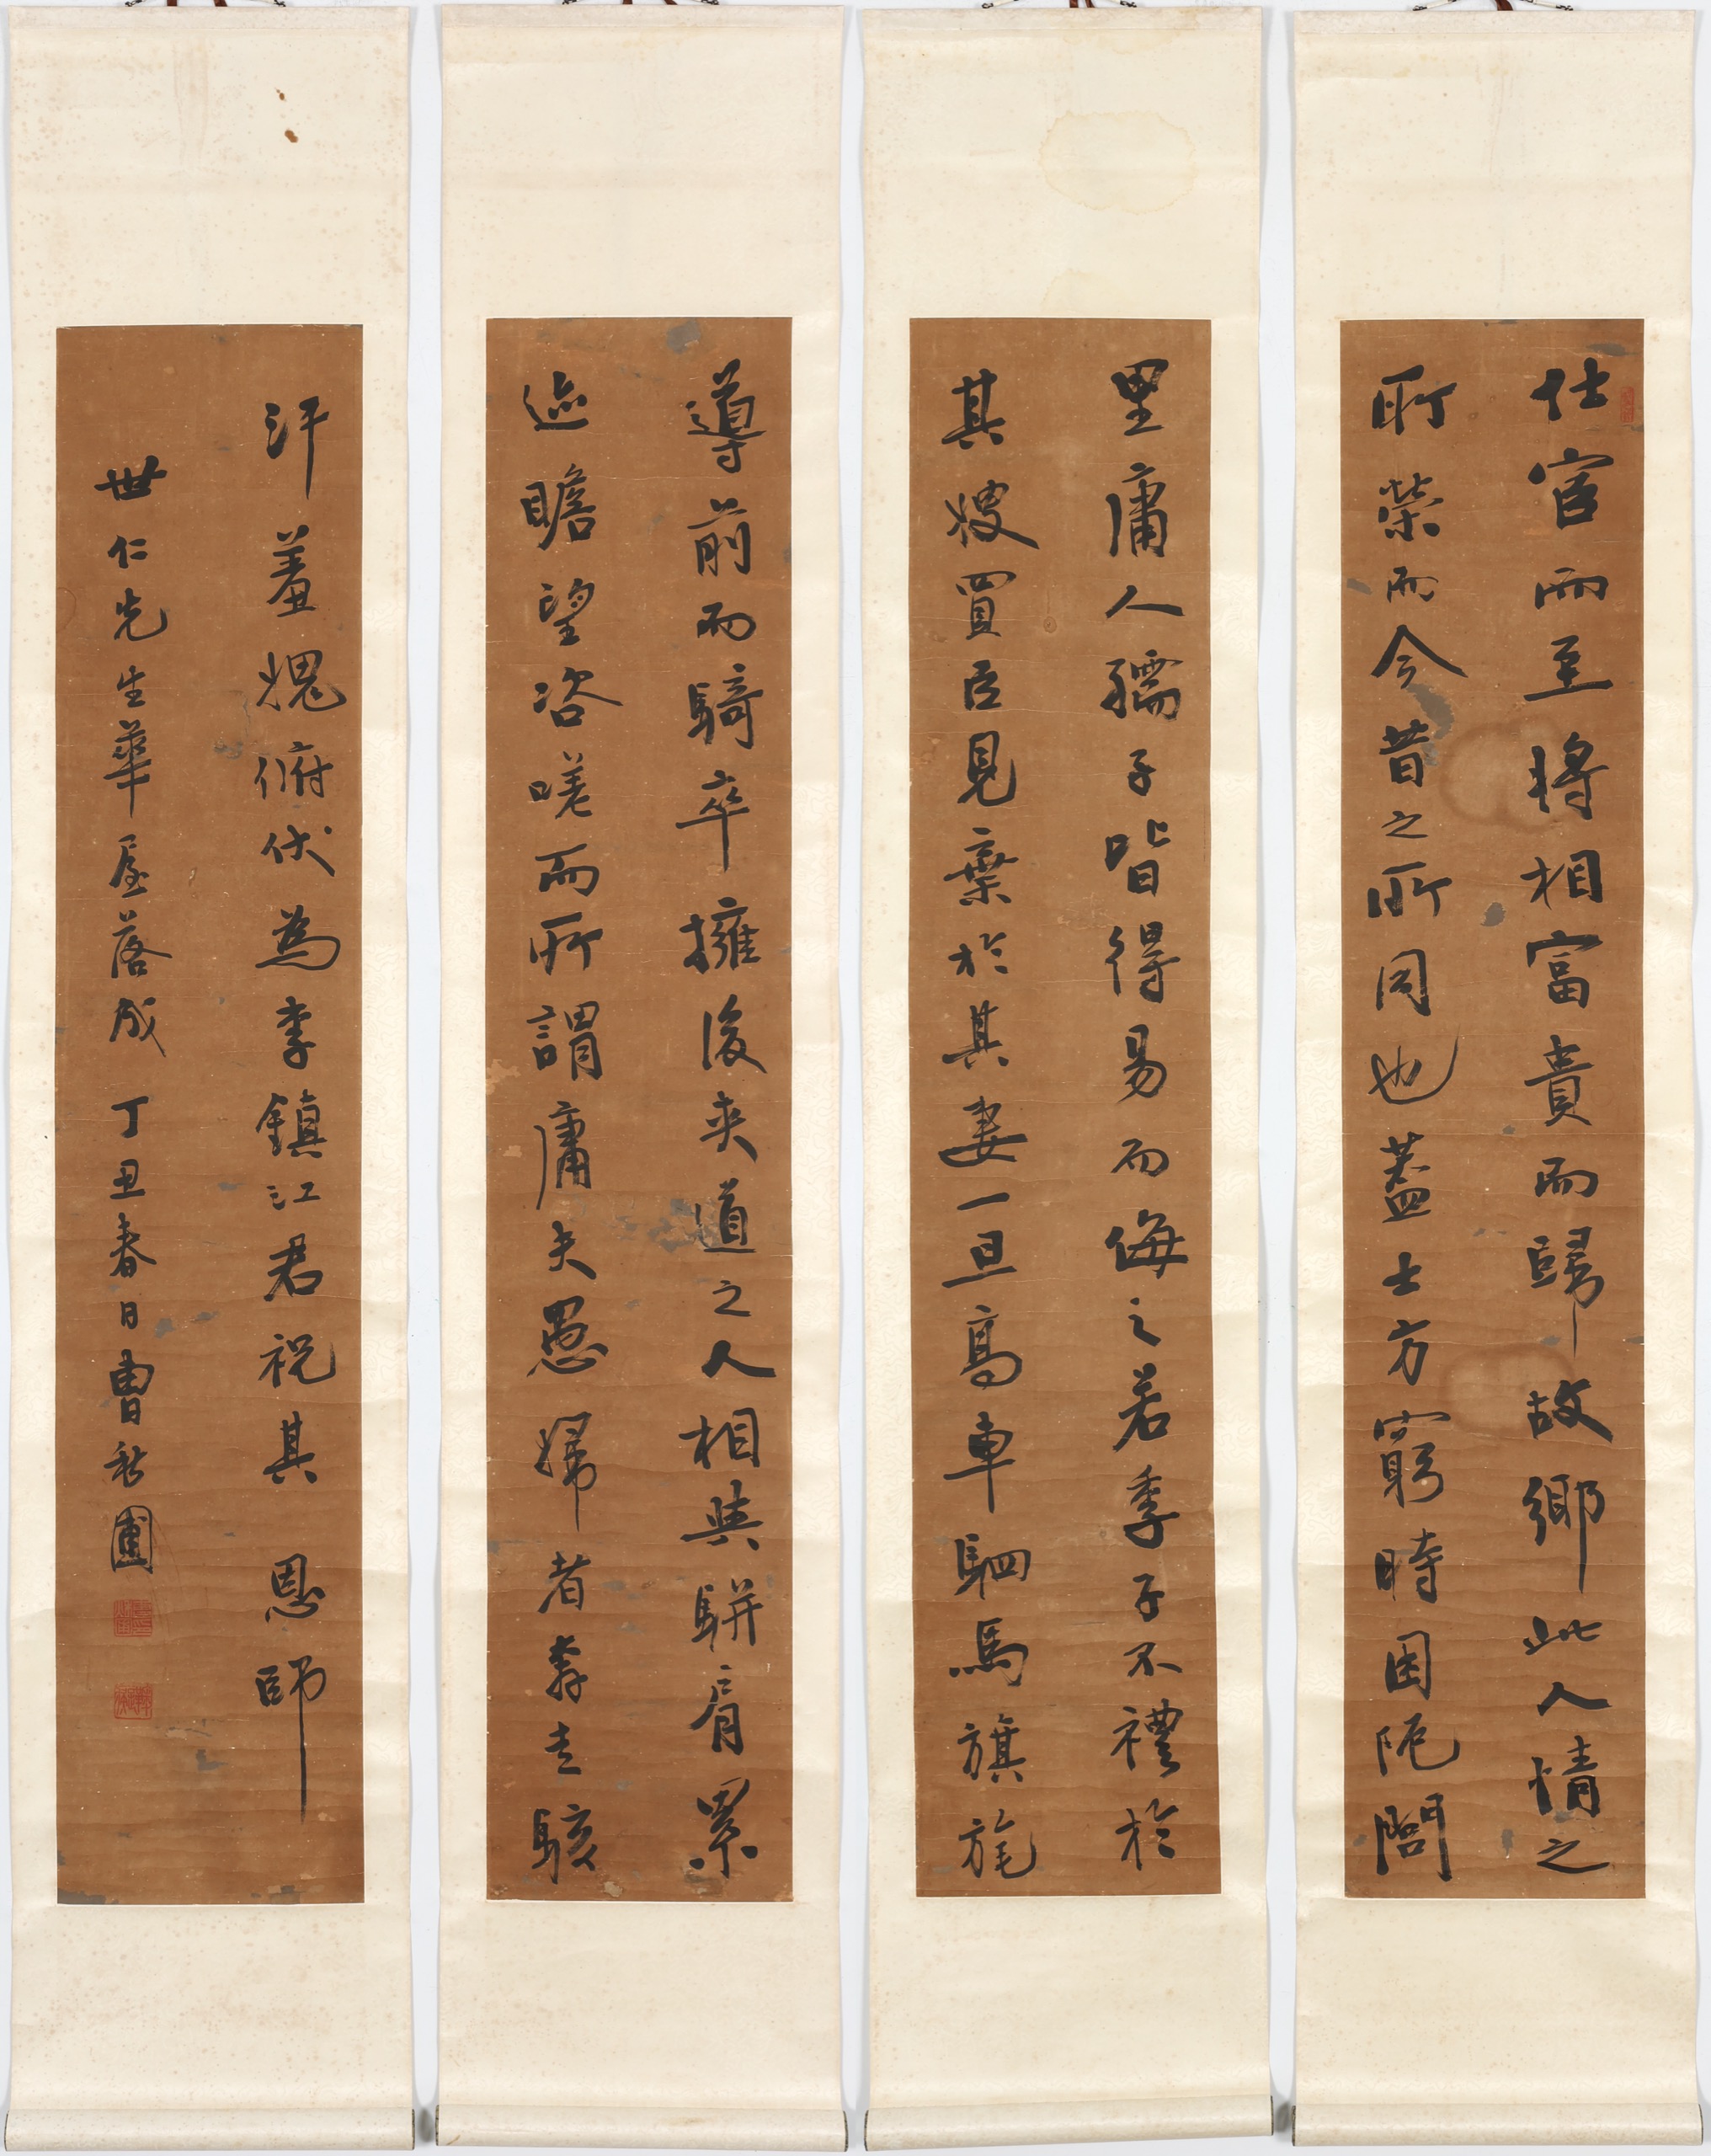 仕宦而至將相富貴而歸故鄉此人情之
所榮而今昔之所同也蓋士方窮時困阨閭
里庸人孺子皆得易而侮之若季子不禮於
其嫂買臣見棄於其妻一旦高車駟馬旗旄
導前而騎卒擁後夾道之人相與駢肩累
迹瞻望咨嗟而所謂庸夫愚婦者奔走駭
汗羞愧俯伏為李鎮江君祝其 恩師
世仁先生華屋落成 丁丑春日曹秋圃